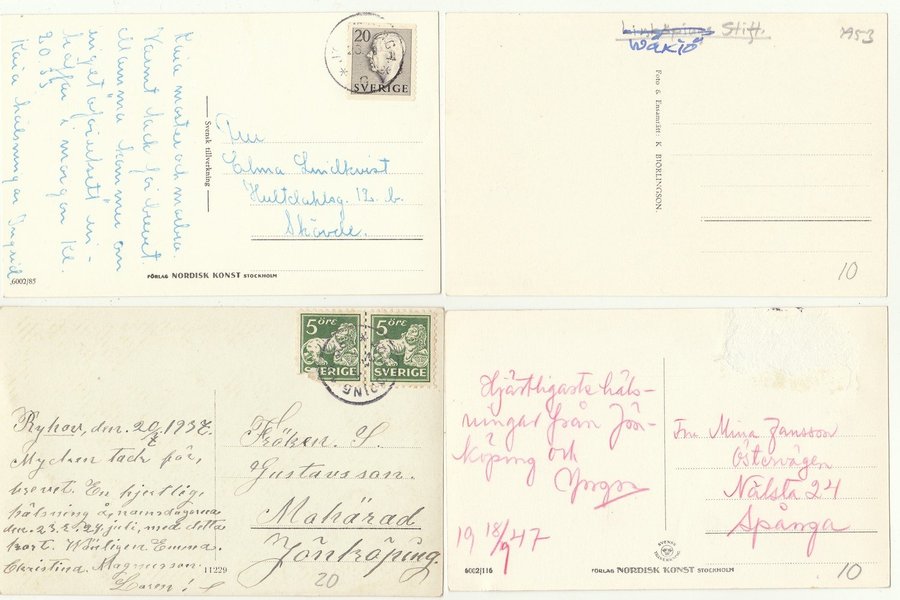 Kära moster och morbror.
Varmt tack för brevet
Mamma kommer om
inget oförutsett in-
träffar i morgon kl.
20.55
Kära hälsningar Ingrid
20
SVERIGE
Svensk tillverkning
Fru
Elma Lindkvist
Hultdahlsg. 12. b.
Skövde.
6002/85
FÖRLAG NORDISK KONST STOCKHOLM
Linköpings Stift.
Växjö
1953
Foto & Ensamrätt: K BIÖRLINGSON.
10
5 ÖRE 5 ÖRE
SVERIGE SVERIGE
Ryhov, den. 20/7 1937.
Mycken tack för,
brevet. En hjertlig,
hälsning å, namsdagarna
den. 23. & 24. juli, med detta
kort. Wänligen Emma.
Christina. Magnusson.
11229
Fröken. S.
Gustavsson.
Mahärad
Jönköping.
20
Hjärtligaste häls-
ningar från Jön-
köping och
Yngve
19 18/9 47
Fru Mina Jansson
Östervägen
Nälsta 24
Spånga
SVENSK TILLVERKNING
6002/116
FÖRLAG NORDISK KONST STOCKHOLM
10